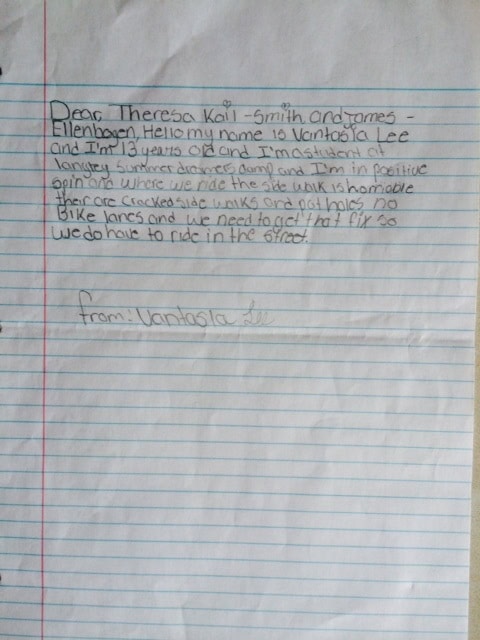 Dear, Theresa Kail-Smith and James -
Ellenbogen, Hello my name is Vantasia Lee
and I'm 13 years old and I'm a student at
langley Summer dreamers camp and I'm in positive
spin and where we ride the side walk is horriable
their are cracked side walks and pot holes no
Bike lanes and we need to get that fix so
we do have to ride in the street.
from: Vantasia Lee